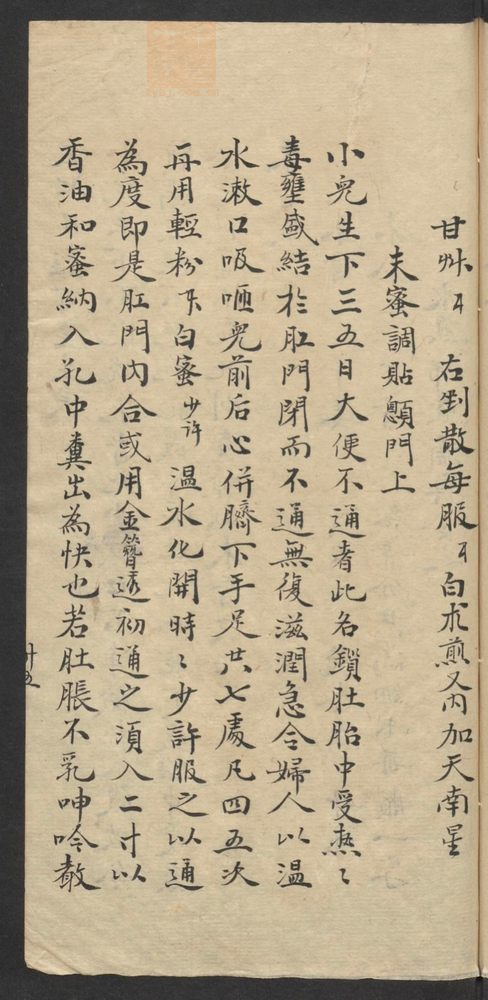 甘艸 右剉散每服 白朮煎又內加天南星
末蜜調貼顖門上
小兒生下三五日大便不通者此名鎖肚胎中受熱〻
毒壅盛結於肛門閉而不通無復滋潤急令婦人以温
水漱口吸咂兒前后心併臍下手足共七處凡四五次
再用輕粉 白蜜少許温水化開時〻少許服之以通
為度即是肛門內合或用金簪透初通之須入二寸以
香油和蜜納入孔中糞出為快也若肚脹不乳呻吟
廿五